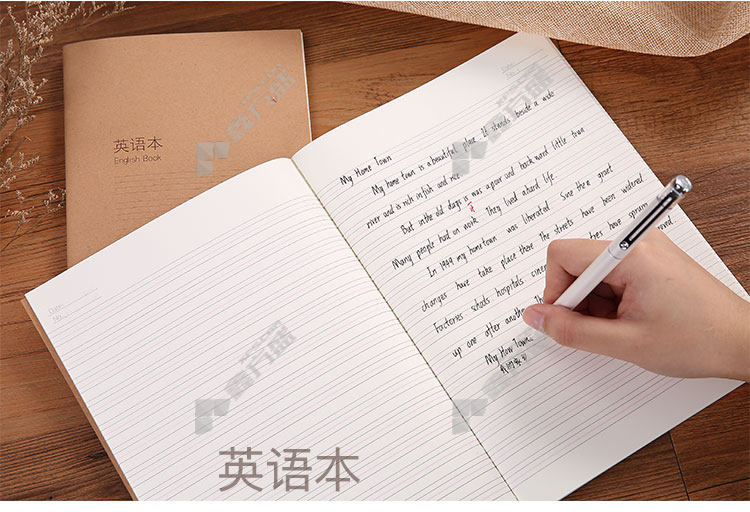 英语本
English Book
Date:
No.:
Date:
No.:
My Home Town
My home town is a beautiful place. It stands beside a wide
river and is rich in fish and rice.
But in the old days is was a poor and back ward little town
it
Many people had on work. They lived a hard life.
In 1949 my hometown was liberated. Sine then great
changes have take place there The streets have been widened.
Factories schools hospitals cinem tres have sprung
up one after anothe The
My How Town.
我的家
英语本
鑫方盛
鑫方盛
鑫方盛
鑫方盛